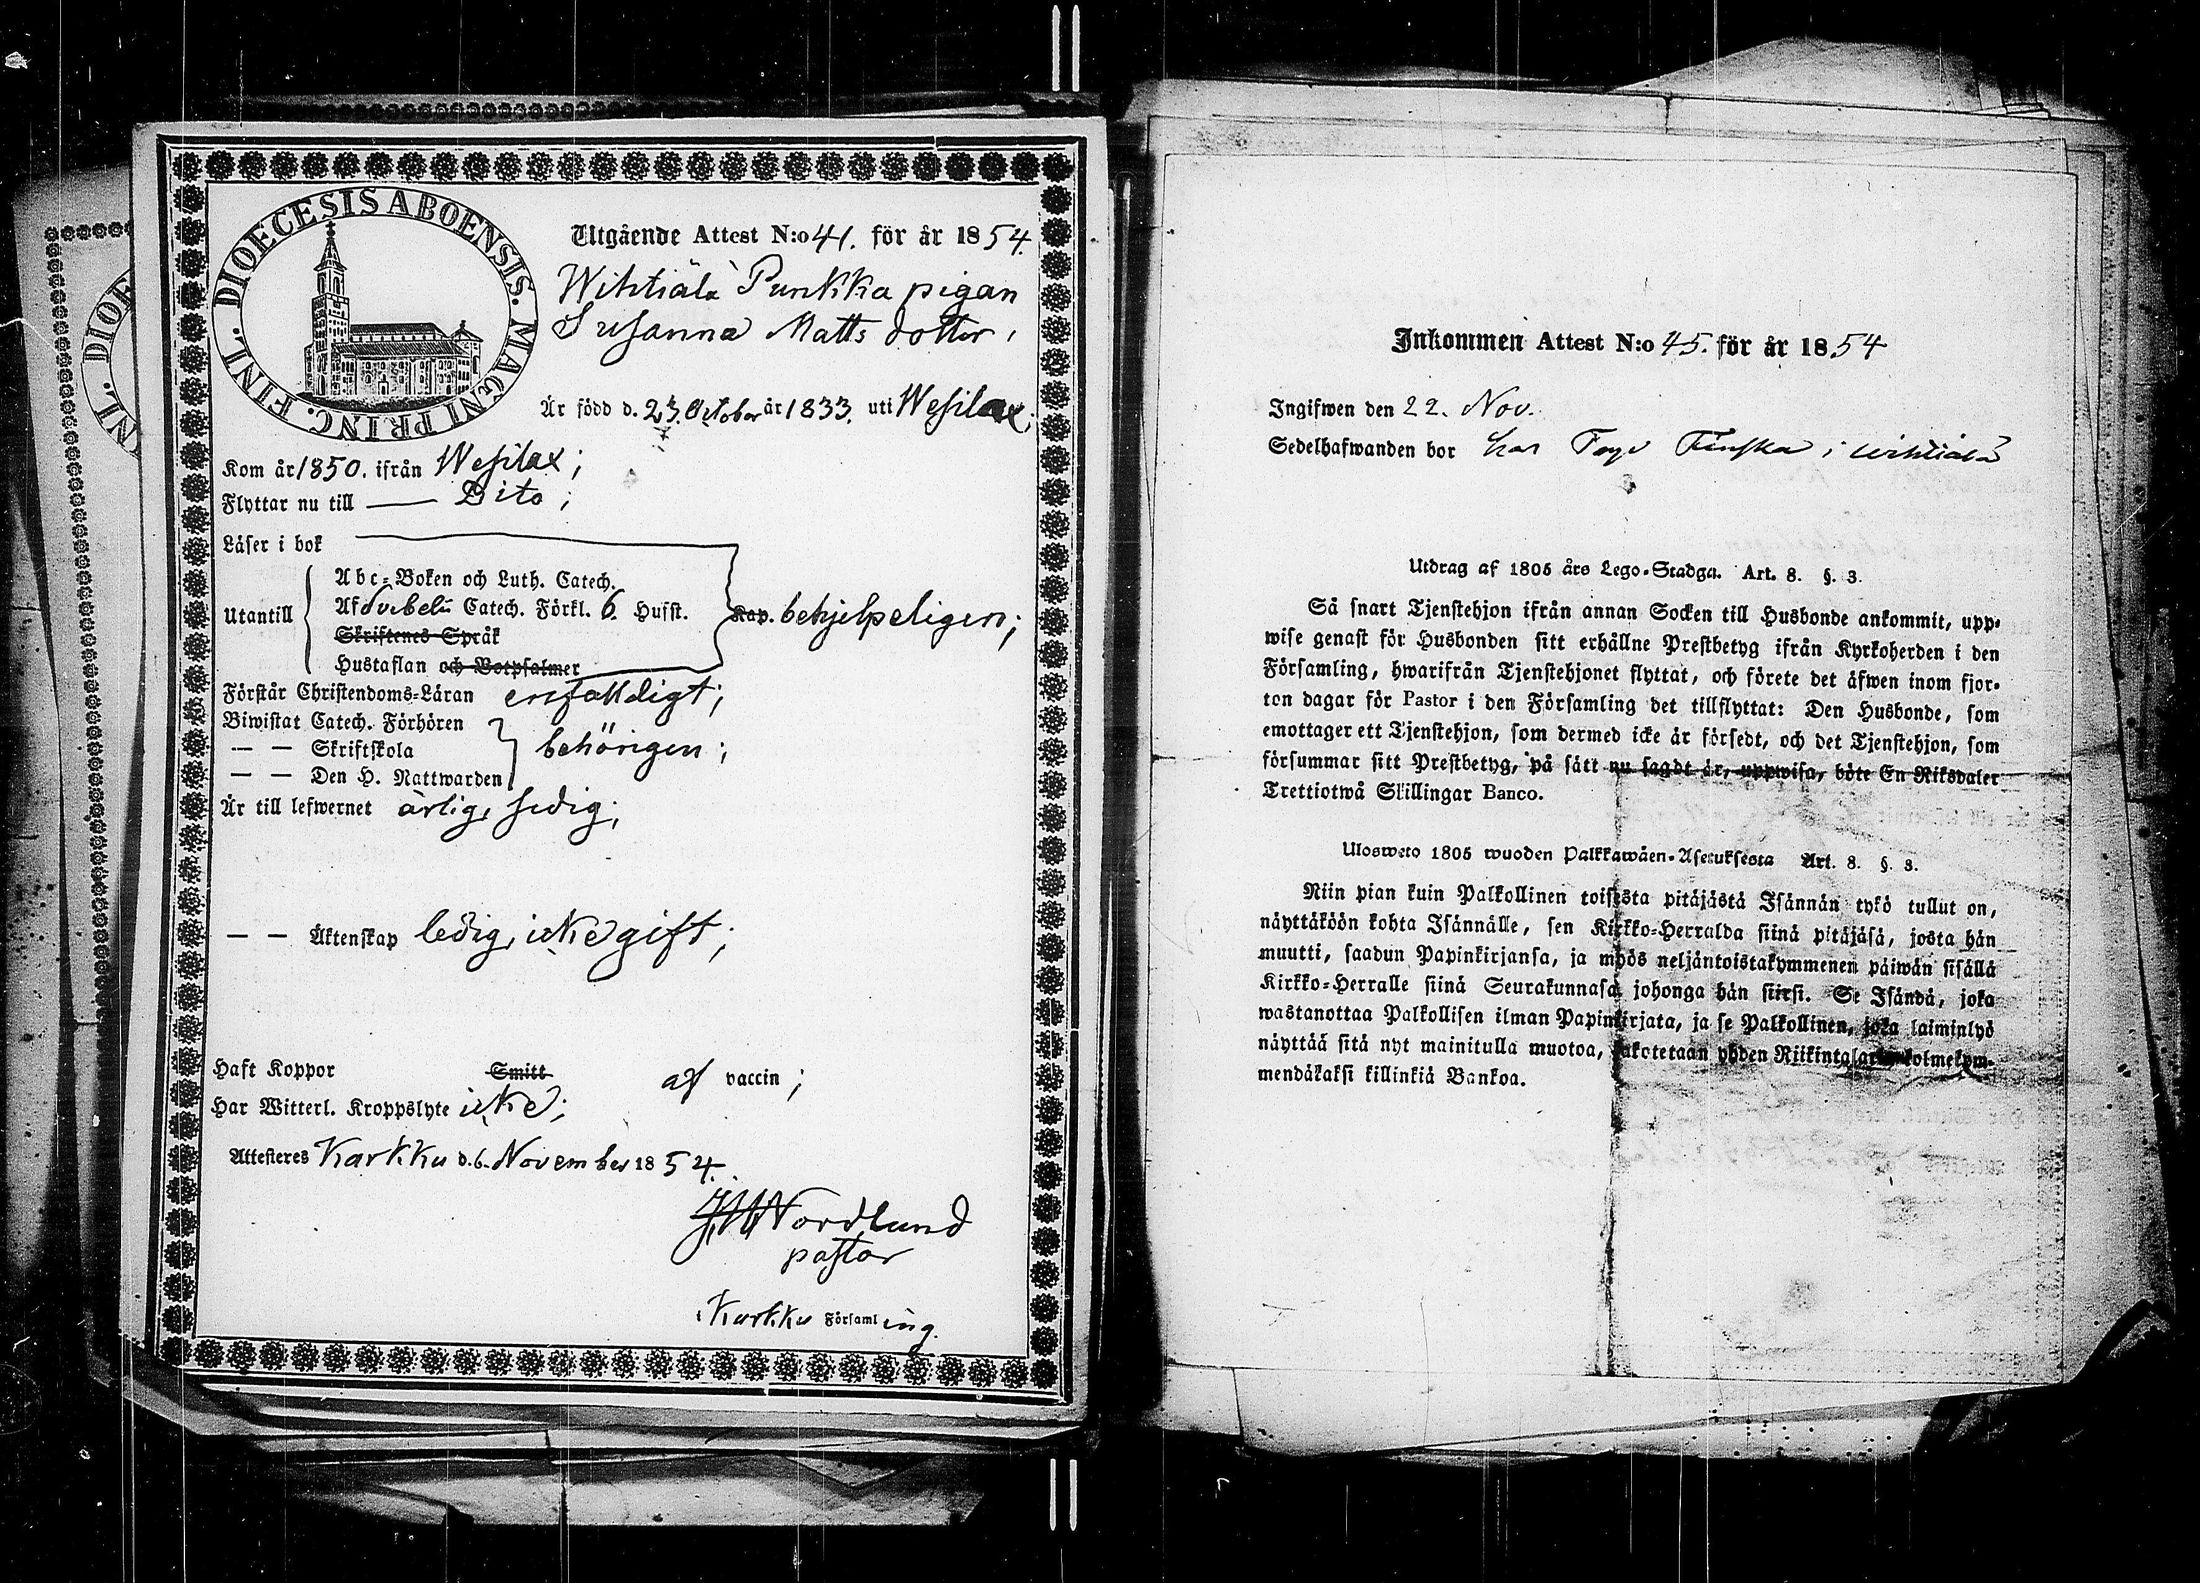 DIOECESIS ABOENSIS. MAGNI PRINC. FINL.
Utgående Attest N:o 41. för år 1854.
Wihtiälä Punkka pigan
Susanna Matts dotter,
Är född d. 23. October år 1833. uti Wesilax;
Kom år 1850. ifrån Wesilax;
Flyttar nu till — Dito;
Läser i bok
Utantill
Abc-Boken och Luth. Catech.
Af Svebelii Catech. Förkl. 6. Hufst. Kap. behjelpeligen;
Skriftenes Språk
Hustaflan och Botpsalmer
Förstår Christendoms-Läran enfaldigt;
Biwistat Catech. Förhören
— — Skriftskola behörigen;
— — Den H. Nattwarden
Är till lefwernet ärlig, sedig;
— — Äktenskap ledig, icke gift;
Haft Koppor Smitt af vaccin;
Har Witterl. Kroppslyte icke;
Attesteres Karkku d. 6. November 1854.
Nordlund
pastor
i Karkku Församling.
DIOE
FINL.
Inkommen Attest N:o 45. för år 1854
Ingifwen den 22. Nov.
Sedelhafwanden bor hos i Wihtiälä
Utdrag af 1805 års Lego-Stadga. Art. 8. §. 3.
Så snart Tjenstehjon ifrån annan Socken till Husbonde ankommit, upp-
wise genast för Husbonden sitt erhållne Prestbetyg ifrån Kyrkoherden i den
Församling, hwarifrån Tjenstehjonet flyttat, och förete det äfwen inom fjor-
ton dagar för Pastor i den Församling det tillflyttat: Den Husbonde, som
emottager ett Tjenstehjon, som dermed icke är försedt, och det Tjenstehjon, som
försummar sitt Prestbetyg, på sätt nu sagdt är, uppwisa, böte En Riksdaler
Trettiotwå Skillingar Banco.
Ulosweto 1805 wuoden Palkkawäen-Asetuksesta Art. 8. §. 3.
Niin pian kuin Palkollinen toisesta pitäjästä Isännän tykö tullut on,
näyttäköön kohta Isännälle, sen Kirkko-Herralda siinä pitäjäsä, josta hän
muutti, saadun Papinkirjansa, ja myös neljäntoistakymmenen päiwän sisällä
Kirkko-Herralle siinä Seurakunnasa johonga hän siirsi. Se Isändä, joka
wastanottaa Palkollisen ilman Papinkirjata, ja se Palkollinen, joka laiminlyö
näyttää sitä nyt mainitulla muotoa, sakotetaan yhden Riikintalarin kolmekym-
mendäkaksi killinkiä Bankoa.